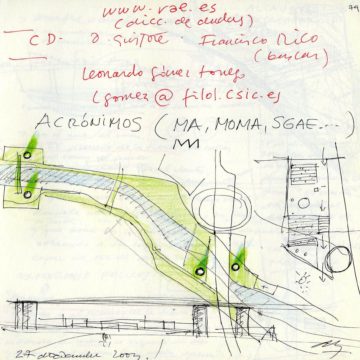 www.rae.es
79
(dicc. de dudas)
CD. Francisco Rico
(buscar)
Leonardo Gómez
lgomez@filol.csic.es
ACRÓNIMOS (MA, MOMA, SGAE...)
27 diciembre 2003.